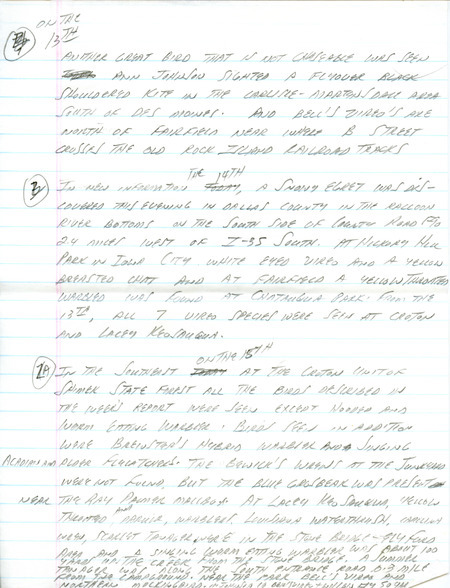 ON THE
13TH
ANOTHER GREAT BIRD THAT IS NOT CHASEABLE WAS SEEN
ANN JOHNSON SIGHTED A FLYOVER BLACK
SHOULDERED KITE IN THE CARLISLE-MARTENSDALE AREA
SOUTH OF DES MOINES. AND BELL'S VIREO'S ARE
NORTH OF FAIRFIELD NEAR WHERE B STREET
CROSSES THE OLD ROCK ISLAND RAILROAD TRACKS
THE 14TH
IN NEW INFORMATION, A SNOWY EGRET WAS DIS-
COVERED THIS EVENING IN DALLAS COUNTY IN THE RACCOON
RIVER BOTTOMS ON THE SOUTH SIDE OF COUNTY ROAD F90
2.4 MILES WEST OF I-35 SOUTH. AT HICKORY HILL
PARK IN IOWA CITY WHITE EYED VIREO AND A YELLOW
BREASTED CHAT AND AT FAIRFIELD A YELLOW THROATED
WARBLER WAS FOUND AT CHATAUQUA PARK. FROM THE
13TH, ALL 7 VIREO SPECIES WERE SEEN AT CROTON
AND LACEY KEOSAUQUA.
ON THE 15TH
IN THE SOUTHEAST AT THE CROTON UNIT OF
SHIMEK STATE FOREST ALL THE BIRDS DESCRIBED IN
THE WEEK'S REPORT WERE SEEN EXCEPT HOODED AND
WORM EATING WARBLER. BIRDS SEEN IN ADDITION
WERE BREWSTER'S HYBRID WARBLER AND SINGING
ACADIAN AND ALDER FLYCATCHERS. THE BEWICK'S WRENS AT THE JUNKYARD
WERE NOT FOUND, BUT THE BLUE GROSBEAK WAS PRESENT
NEAR THE RAY PALMER MAILBOX. AT LACEY KEOSAUQUA, YELLOW
THROATED AND PARULA, WARBLERS, LOUISIANA WATERTHRUSH,
SCARLET TANAGER WERE IN THE STONE BRIDGE-
AREA AND A SINGING WORM EATING WARBLER WAS ABOUT 100
YARDS UP THE CREEK FROM THE STONE BRIDGE. A SUMMER
TANAGER WAS ALONG THE SOUTH ENTRANCE ROAD 0.3 MILE
FROM THE CAMPGROUND. NEAR THE PARK BELL'S VIREO AND
NORTHERN MOCKINGBIRD